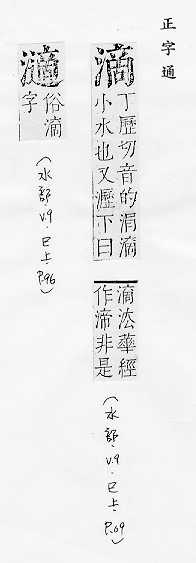 正字通
滴
丁歷切音的涓滴
小水也又瀝下曰
滴法華經
作渧非是
(水部.v.9.巳上.P.69)
俗滴
字
(水部.v.9.巳上.P.96)